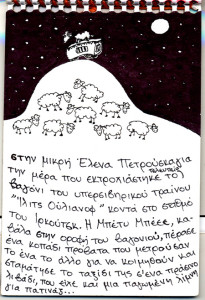 στην μικρή Έλενα Πετρούσκαγια
την μέρα που εκτροχιάστηκε το
τελευταίο
βαγόνι του υπερσιβηρικού τραίνου
"Ιλίτς Ουλιανοφ" κοντά στο σταθμό
του Ιρκούτσκ. Η Μπέτυ Μπέεε, κα-
βάλα στην οροφή του βαγονιού, πέρασε
ένα κοπάδι πρόβατα που μετρούσαν
το ένα το άλλο για να κοιμηθούν και
σταμάτησε το ταξίδι της σ'ένα πράσινο
λιβάδι, που είχε και μια παγωμένη λίμνη
για πατινάζ...